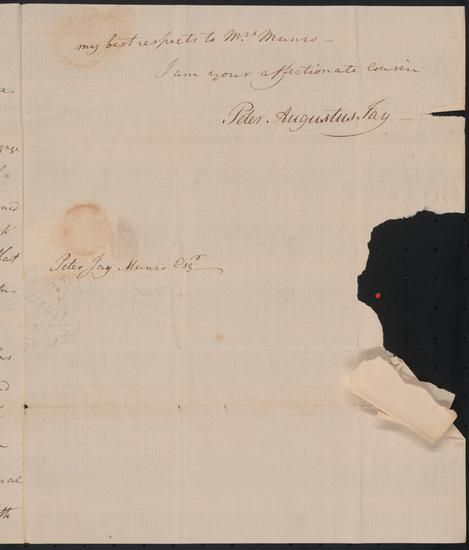 my best respects to Mrs Munro —
I am your affectionate cousin
Peter Augustus Jay —
Peter Jay Munro Esqr